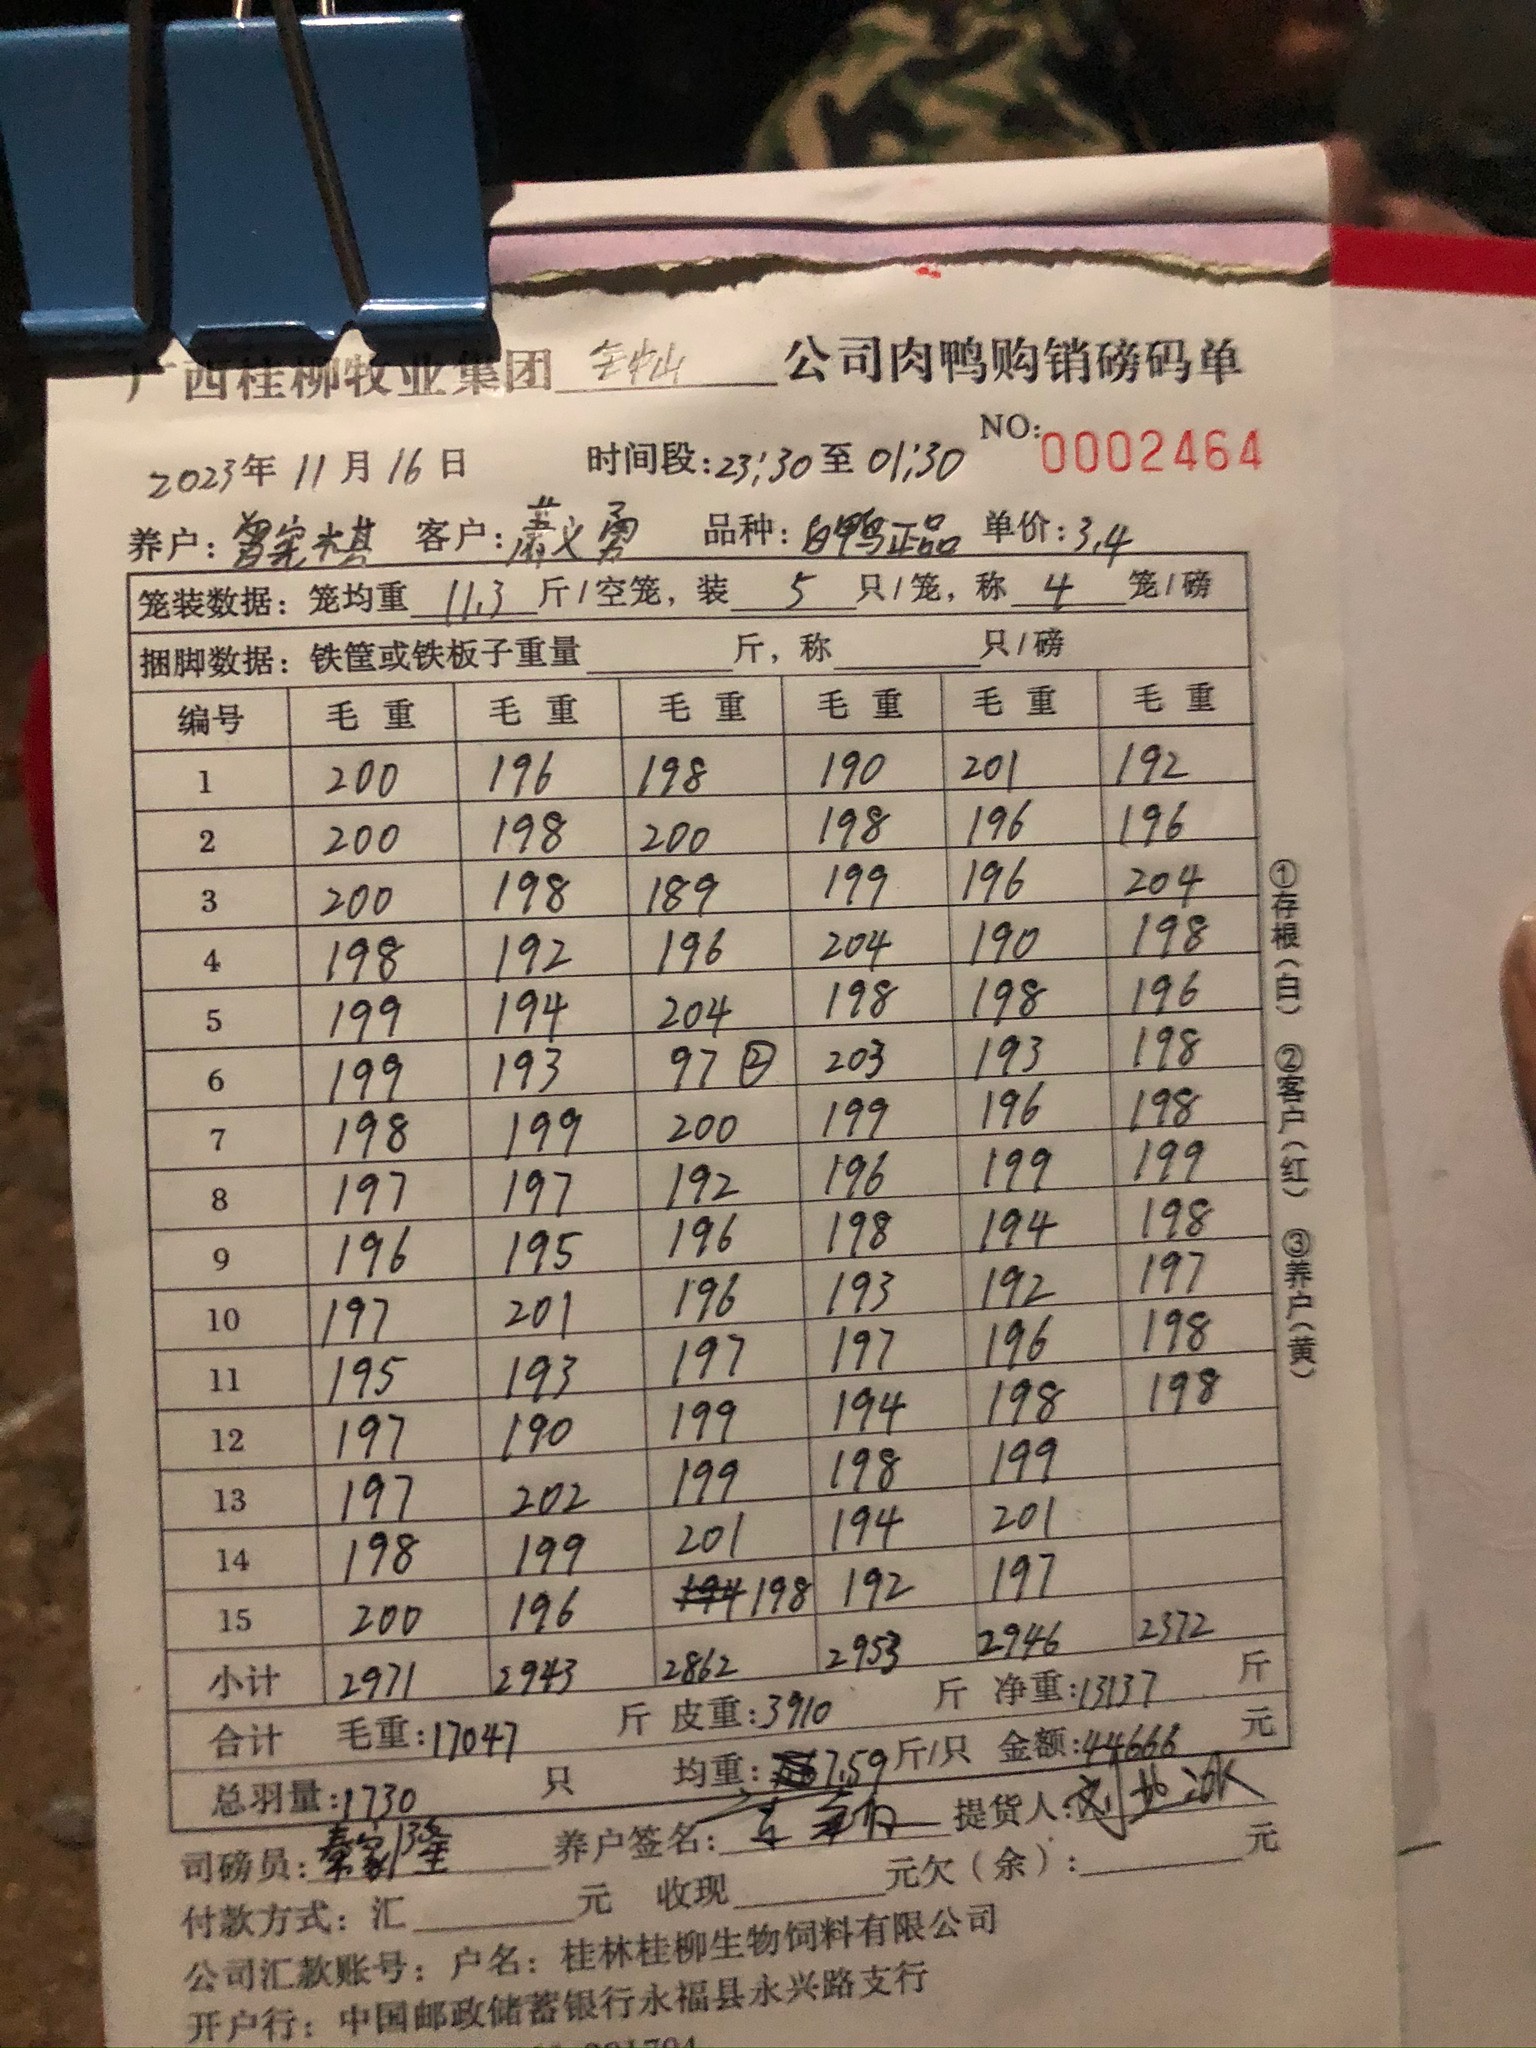 广西桂柳牧业集团 公司肉鸭购销磅码单
NO:0002464
2023年11月16日 时间段:23:30至01:30
养户: 客户:萧义勇 品种:白鸭正品 单价:3.4
笼装数据: 笼均重 11.3 斤/空笼, 装 5 只/笼, 称 4 笼/磅
捆脚数据: 铁筐或铁板子重量 斤, 称 只/磅
编号 毛重 毛重 毛重 毛重 毛重 毛重
1 200 196 198 190 201 192
2 200 198 200 198 196 196
3 200 198 189 199 196 204
4 198 192 196 204 190 198
5 199 194 204 198 198 196
6 199 193 97② 203 193 198
7 198 199 200 199 196 198
8 197 197 192 196 199 199
9 196 195 196 198 194 198
10 197 201 196 193 192 197
11 195 193 197 197 196 198
12 197 190 199 194 198 198
13 197 202 199 198 199
14 198 199 201 194 201
15 200 196 194 198 192 197
小计 2971 2943 2862 2953 2946 2372
合计 毛重:17047 斤 皮重:3910 斤 净重:13137 斤
总羽量:1730 只 均重: 7.59 斤/只 金额:44666 元
司磅员:秦家隆 养户签名: 提货人:
付款方式: 汇 元 收现 元欠(余): 元
公司汇款账号: 户名: 桂林桂柳生物饲料有限公司
开户行: 中国邮政储蓄银行永福县永兴路支行
①存根(白) ②客户(红) ③养户(黄)